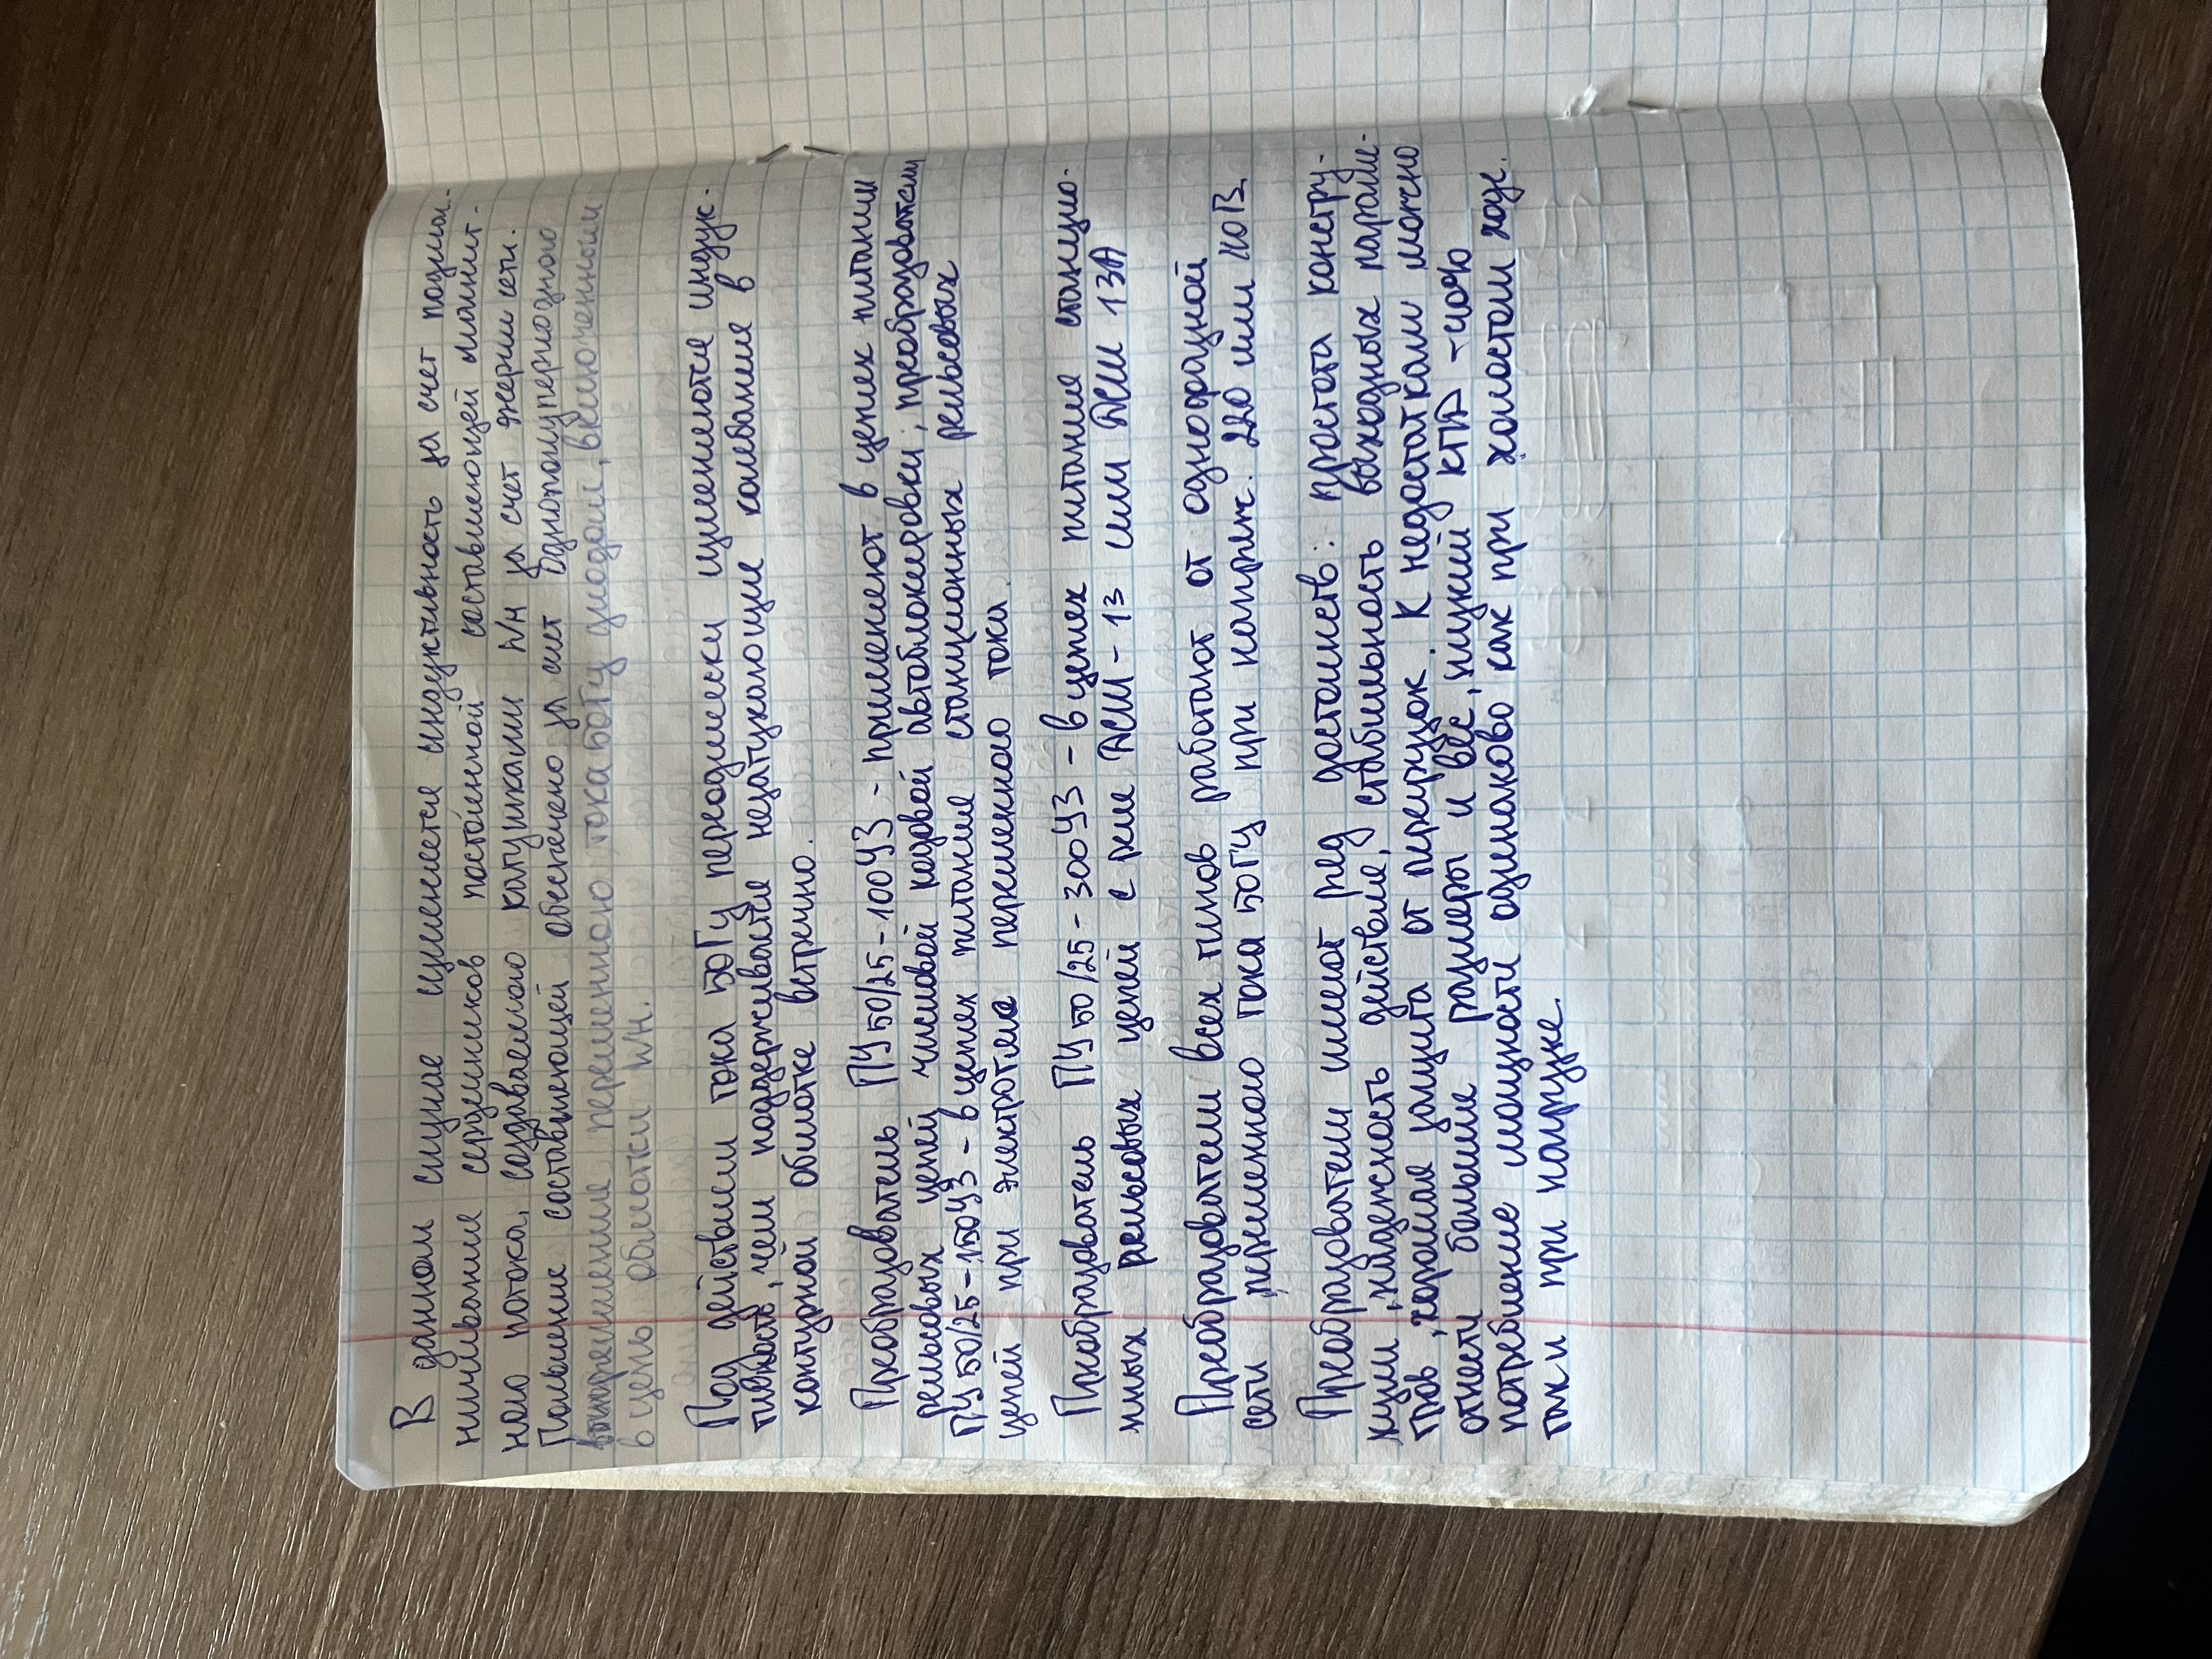 В данном случае изменяется индуктивность за счет подмаг-
ничивания сердечников постоянной составляющей магнит-
ного потока, создаваемого катушками Wн за счет энергии сети.
Появление составляющей обеспечено за счет однополупериодного
выпрямление переменного тока 50Гц диодом, включенным
в цепь обмотки Wн.
Под действием тока 50Гц переодически изменяются индук-
тивность, чем поддерживаются незатухающие колебание в
контурной обмотке встречно.
Преобразователь ПЧ 50/25-100У3 - применяют в цепях питании
рельсовых цепей числовой кодовой автоблокировки; преобразователи
ПЧ 50/25-150У3 - в цепях питание станционных рельсовых
цепей при электротяге переменного тока.
Приобразователь ПЧ 50/25-300У3 - в цепях питание станцио-
нных рельсовых цепей с реле ДСШ-13 или ДСШ 13А
Преобразователи всех типов работают от однофазной
сети переменного тока 50Гц при напряж. 220 или 110В.
Приобразователи имеют ряд достоинств: простота констру-
кции, надежность действие, стабильность выходных параме-
тров, хорошая защита от перегрузок. К недостаткам можно
отнести большие размеры и вес, низкий КПД - 40%
потребление мощности одинаково как при холостом ходе.
так и при нагрузке.